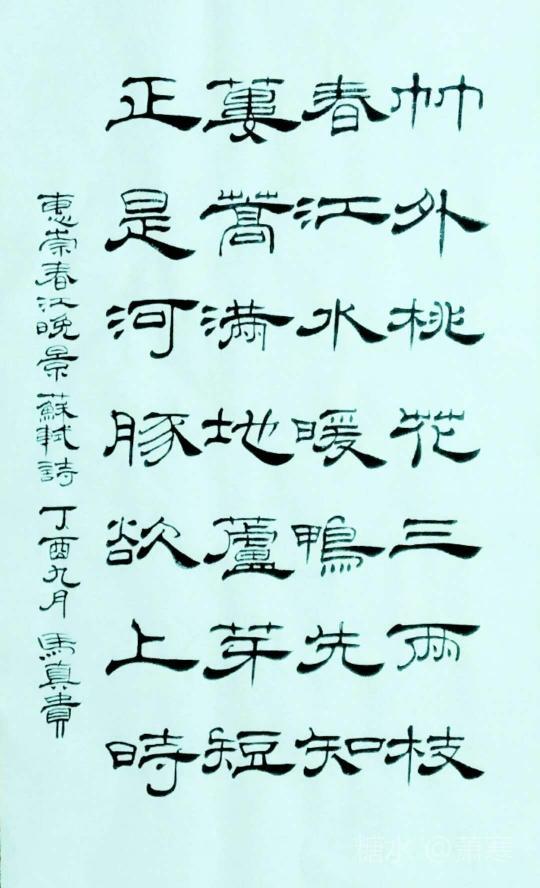 竹外桃花三兩枝
春江水暖鴨先知
蔞蒿滿地蘆芽短
正是河豚欲上時
惠崇春江晚景蘇軾詩 丁酉九月 馬真貴
糖水 @萧寒